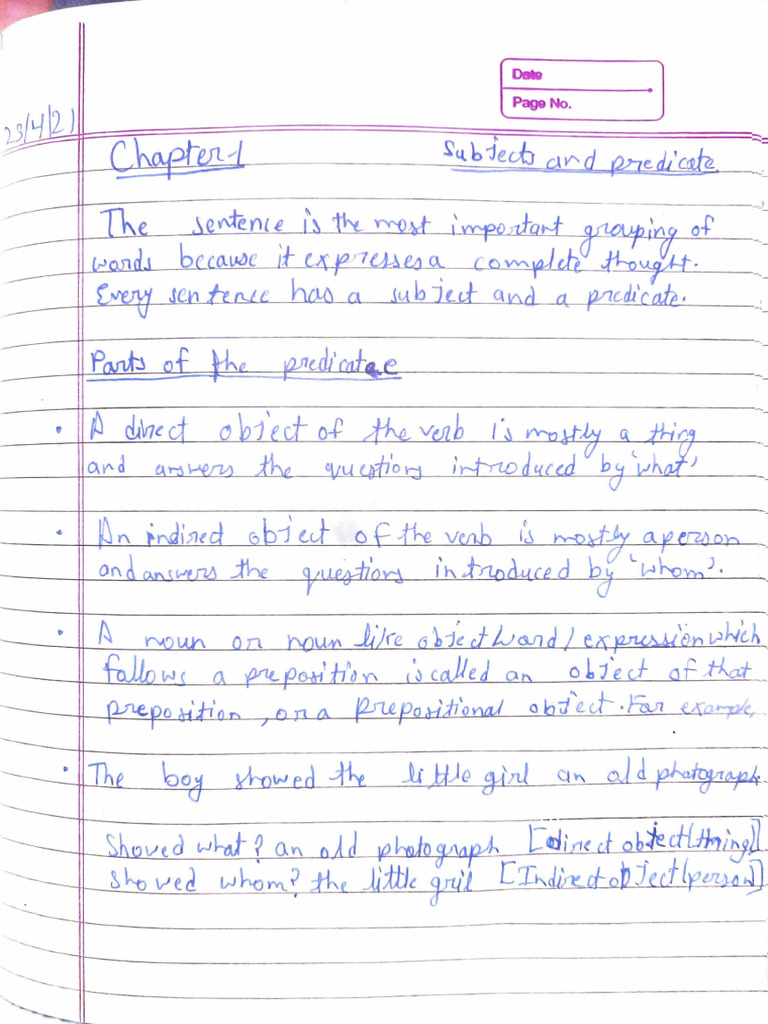 Date
Page No.
23/4/21
Chapter-1 Subjects and predicate
The sentence is the most important grouping of
words because it expresses a complete thought.
Every sentence has a subject and a predicate.
Parts of the predicate
• A direct object of the verb is mostly a thing
and answers the questions introduced by 'what'
• An indirect object of the verb is mostly a person
and answers the questions introduced by 'whom'.
• A noun or noun like object word / expression which
follows a preposition is called an object of that
preposition, or a prepositional object. For example,
• The boy showed the little girl an old photograph
Showed what? an old photograph [direct object(thing)]
showed whom? the little gril [Indirect object(person)]